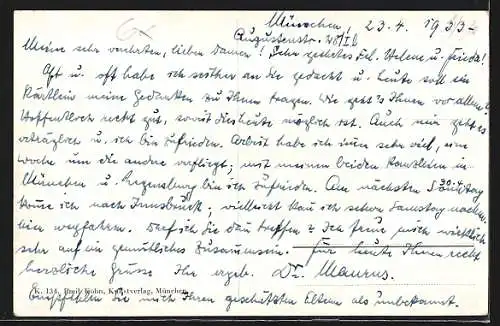 München, 23.4.1933
Augustenstr. 28/I b
Meine sehr verehrten, lieben Damen! Sehr geehrtes Frl. Helene u. Frieda!
Oft u. oft habe ich seither an Sie gedacht u. heute soll ein
Kärtlein meine Gedanken zu Ihnen tragen. Wie geht's Ihnen vor allem?
Hoffentlich recht gut, soweit dies heute möglich ist. Auch mir geht es
erträglich u. ich bin zufrieden. Arbeit habe ich immer sehr viel, eine
Woche um die andere verfliegt; mit meinen beiden Kanzleien in
München u. Regensburg bin ich zufrieden. Am nächsten Sonntag 30.4.
komme ich nach Innsbruck, vielleicht kann ich schon Samstag nachm.
hier wegfahren. Darf ich Sie dann treffen? Ich freue mich wirklich
sehr auf ein gemütliches Zusammensein. Für heute Ihnen recht
herzliche Grüsse Ihr ergeb. Dr. Maurus.
K. 134. Emil Kohn, Kunstverlag, München
Empfehlen Sie mich Ihren geschätzten Eltern als unbekannt.